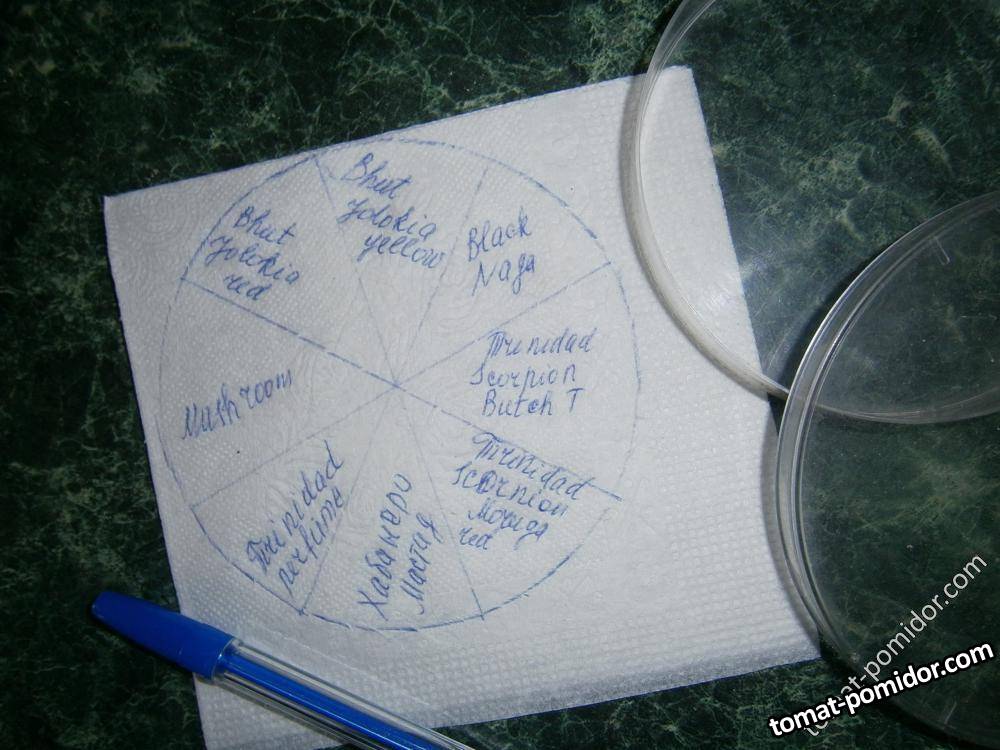 Bhut
Jolokia
yellow
Black
Naga
Trinidad
Scorpion
Butch T
Trinidad
Scorpion
Moruga
red
Хабанеро
Мастад
Trinidad
perfume
Mushroom
Bhut
Jolokia
red
tomat-pomidor.com
tomat-pomidor.com